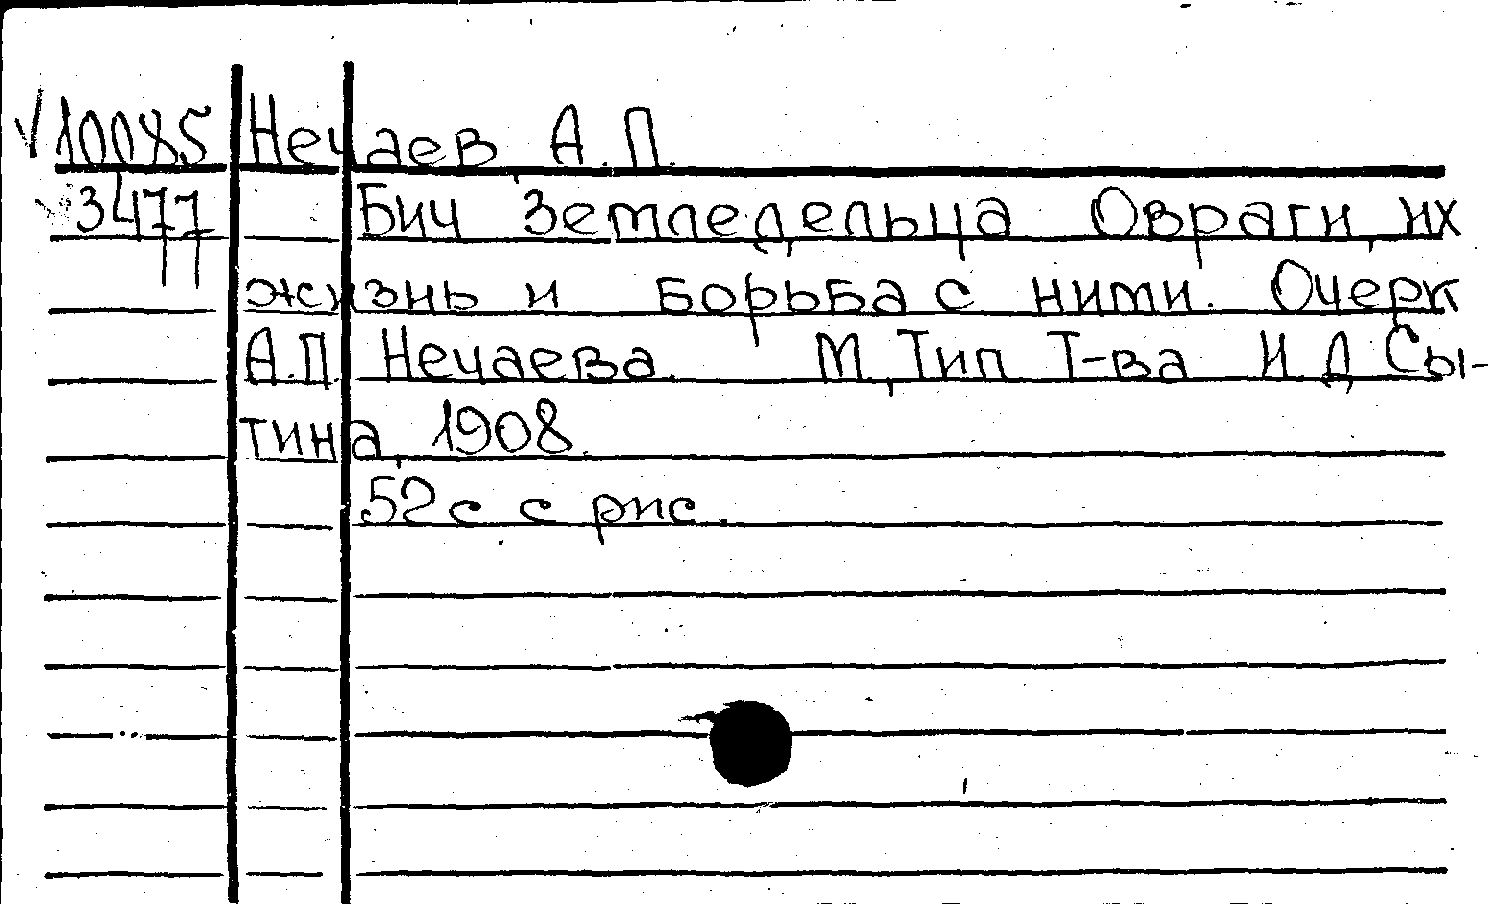 √10085 Нечаев А. П.
3477 Бич земледельца Овраги, их
жизнь и борьба с ними. Очерк
А.П. Нечаева. М, Тип Т-ва И Д Сы-
тина, 1908.
52 с с рис.